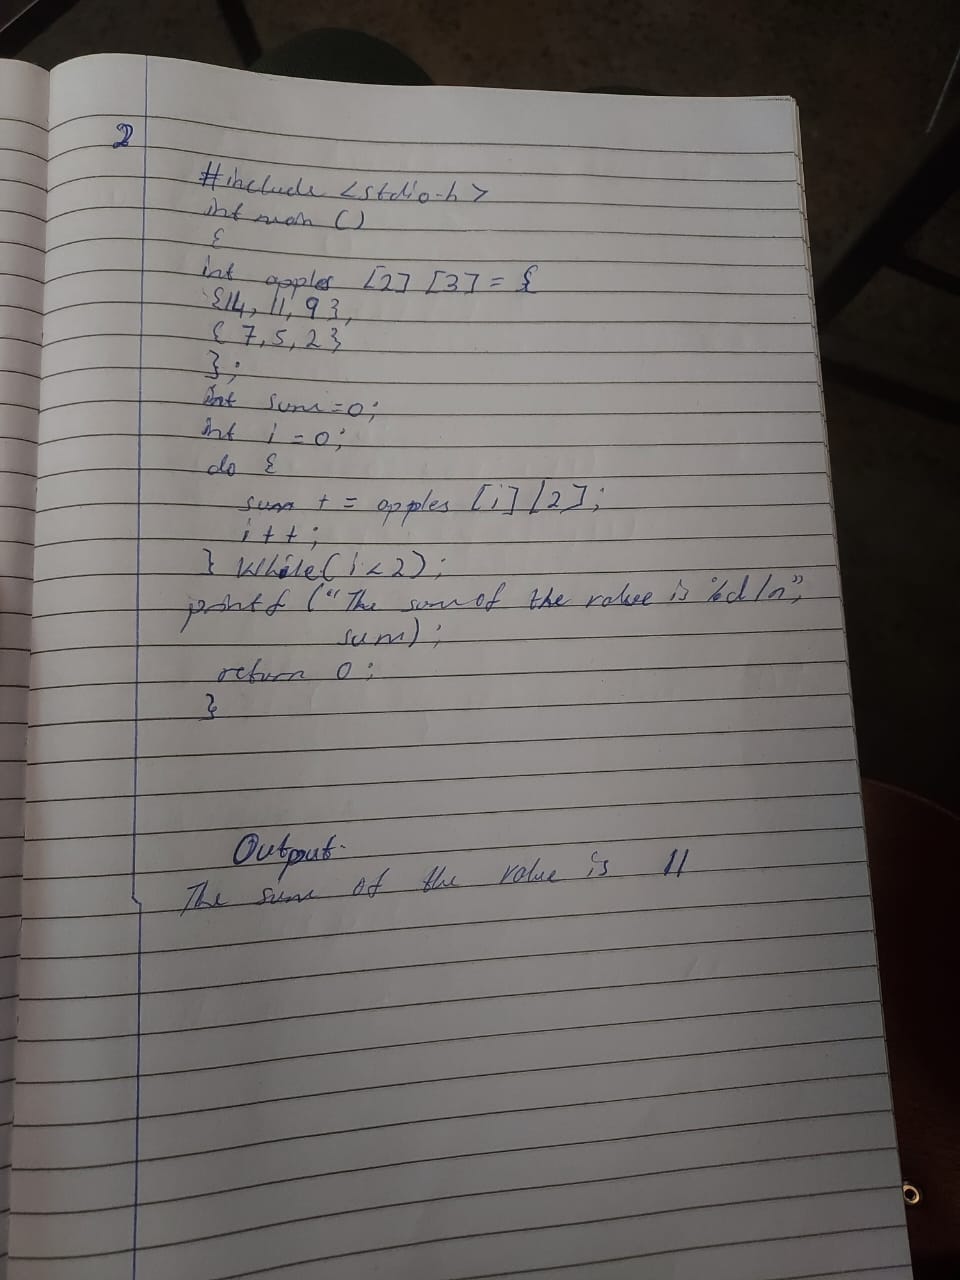 2
#include <stdio.h>
int main ()
{
int apples [2] [3] = {
{14, 11, 9},
{ 7, 5, 2}
};
int sum = 0;
int i = 0;
do {
sum + = apples [i] [2];
i + + ;
} while( i < 2);
printf ("The sum of the value is %d /n",
sum);
return 0 ;
}
Output.
The sum of the value is 11